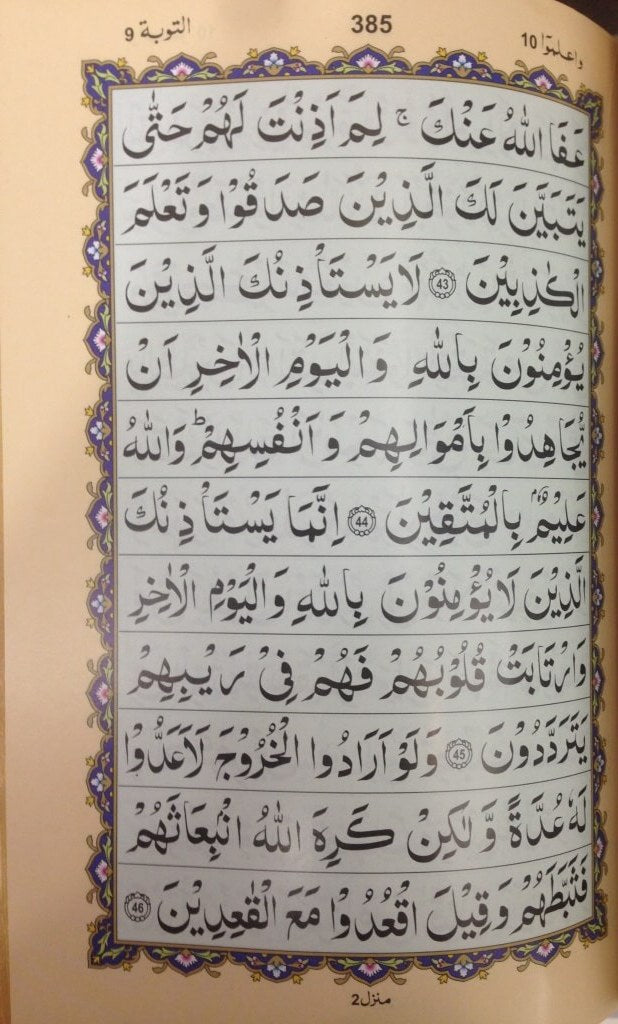 التوبة 9
385
واعلموا 10
عَفَا اللّٰهُ عَنْكَ ۚ لِمَ اَذِنْتَ لَهُمْ حَتّٰى
يَتَبَيَّنَ لَكَ الَّذِيْنَ صَدَقُوْا وَ تَعْلَمَ
الْكٰذِبِيْنَ 43 لَا يَسْتَاْذِنُكَ الَّذِيْنَ
يُؤْمِنُوْنَ بِاللّٰهِ وَالْيَوْمِ الْاٰخِرِ اَنْ
يُّجَاهِدُوْا بِاَمْوَالِهِمْ وَ اَنْفُسِهِمْ ؕ وَاللّٰهُ
عَلِيْمٌۢ بِالْمُتَّقِيْنَ 44 اِنَّمَا يَسْتَاْذِنُكَ
الَّذِيْنَ لَا يُؤْمِنُوْنَ بِاللّٰهِ وَالْيَوْمِ الْاٰخِرِ
وَارْتَابَتْ قُلُوْبُهُمْ فَهُمْ فِيْ رَيْبِهِمْ
يَتَرَدَّدُوْنَ 45 وَلَوْ اَرَادُوا الْخُرُوْجَ لَاَعَدُّوْا
لَهٗ عُدَّةً وَّ لٰكِنْ كَرِهَ اللّٰهُ انْۢبِعَاثَهُمْ
فَثَبَّطَهُمْ وَ قِيْلَ اقْعُدُوْا مَعَ الْقٰعِدِيْنَ 46
منزل 2